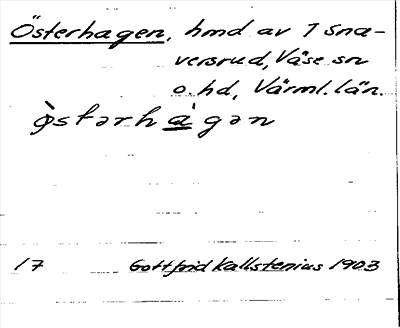 Österhagen, hmd av 1 Sna-
versrud, Väse sn
o. hd, Värml. län.
ø̀stərhàgən
17 Gottfrid Kallstenius 1903